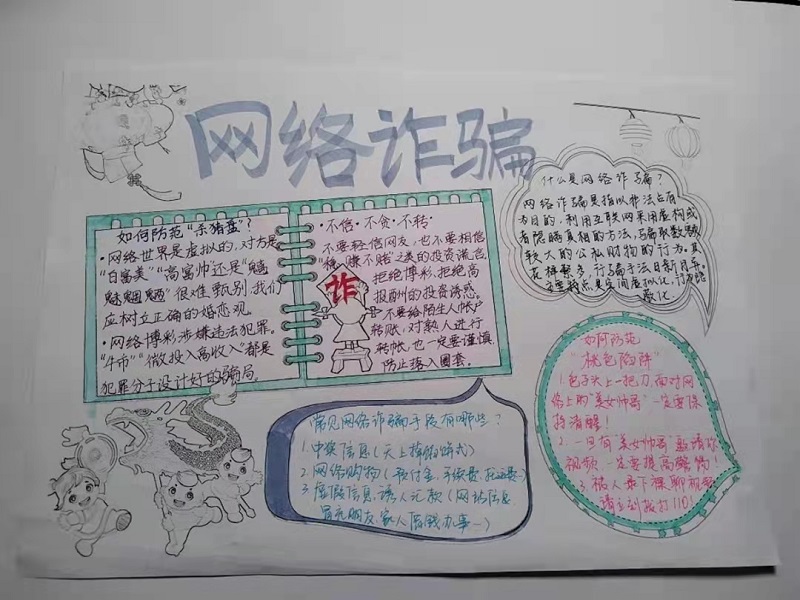 网络诈骗
如何防范"杀猪盘"?
·网络世界是虚拟的,对方是
"白富美""高富帅"还是"魑
魅魍魉"很难甄别,我们
应树立正确的婚恋观.
·网络博彩涉嫌违法犯罪。
"牛币""微投入高收入"都是
犯罪分子设计好的骗局。
·不信·不贪·不转·
不要轻信网友,也不要相信
"稳赚不赔"之类的投资谎言
拒绝博彩,拒绝高
报酬的投资诱惑。
不要给陌生人帐户
转账,对熟人进行
转帐,也一定要谨慎,
防止落入圈套.
诈
什么是网络诈骗?
网络诈骗是指以非法占有
为目的,利用互联网采用虚构或
者隐瞒真相的方法,骗取数额
较大的公私财物的行为.其
花样繁多,行骗手法日新月异.
主要特点是空间虚拟化、行为隐
蔽化.
常见网络诈骗手段有哪些?
1.中奖信息(天上掉馅饼式)
2.网络购物(预付金、手续费、托运费…)
3.虚假信息诱人汇款(网站信息
冒充朋友、家人借钱办事…)
如何防范
"桃色陷阱"
1.色字头上一把刀,面对网
络上的"美女帅哥"一定要保
持清醒!
2.一旦有"美女帅哥"邀请你
视频一定要提高警惕!
3.被人录下裸聊视频
请立刻拨打110!